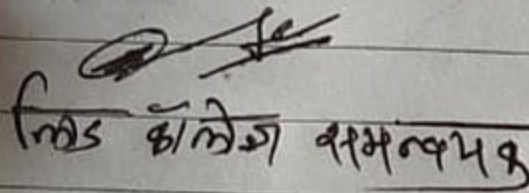 लिड कॉलेज समन्वयक